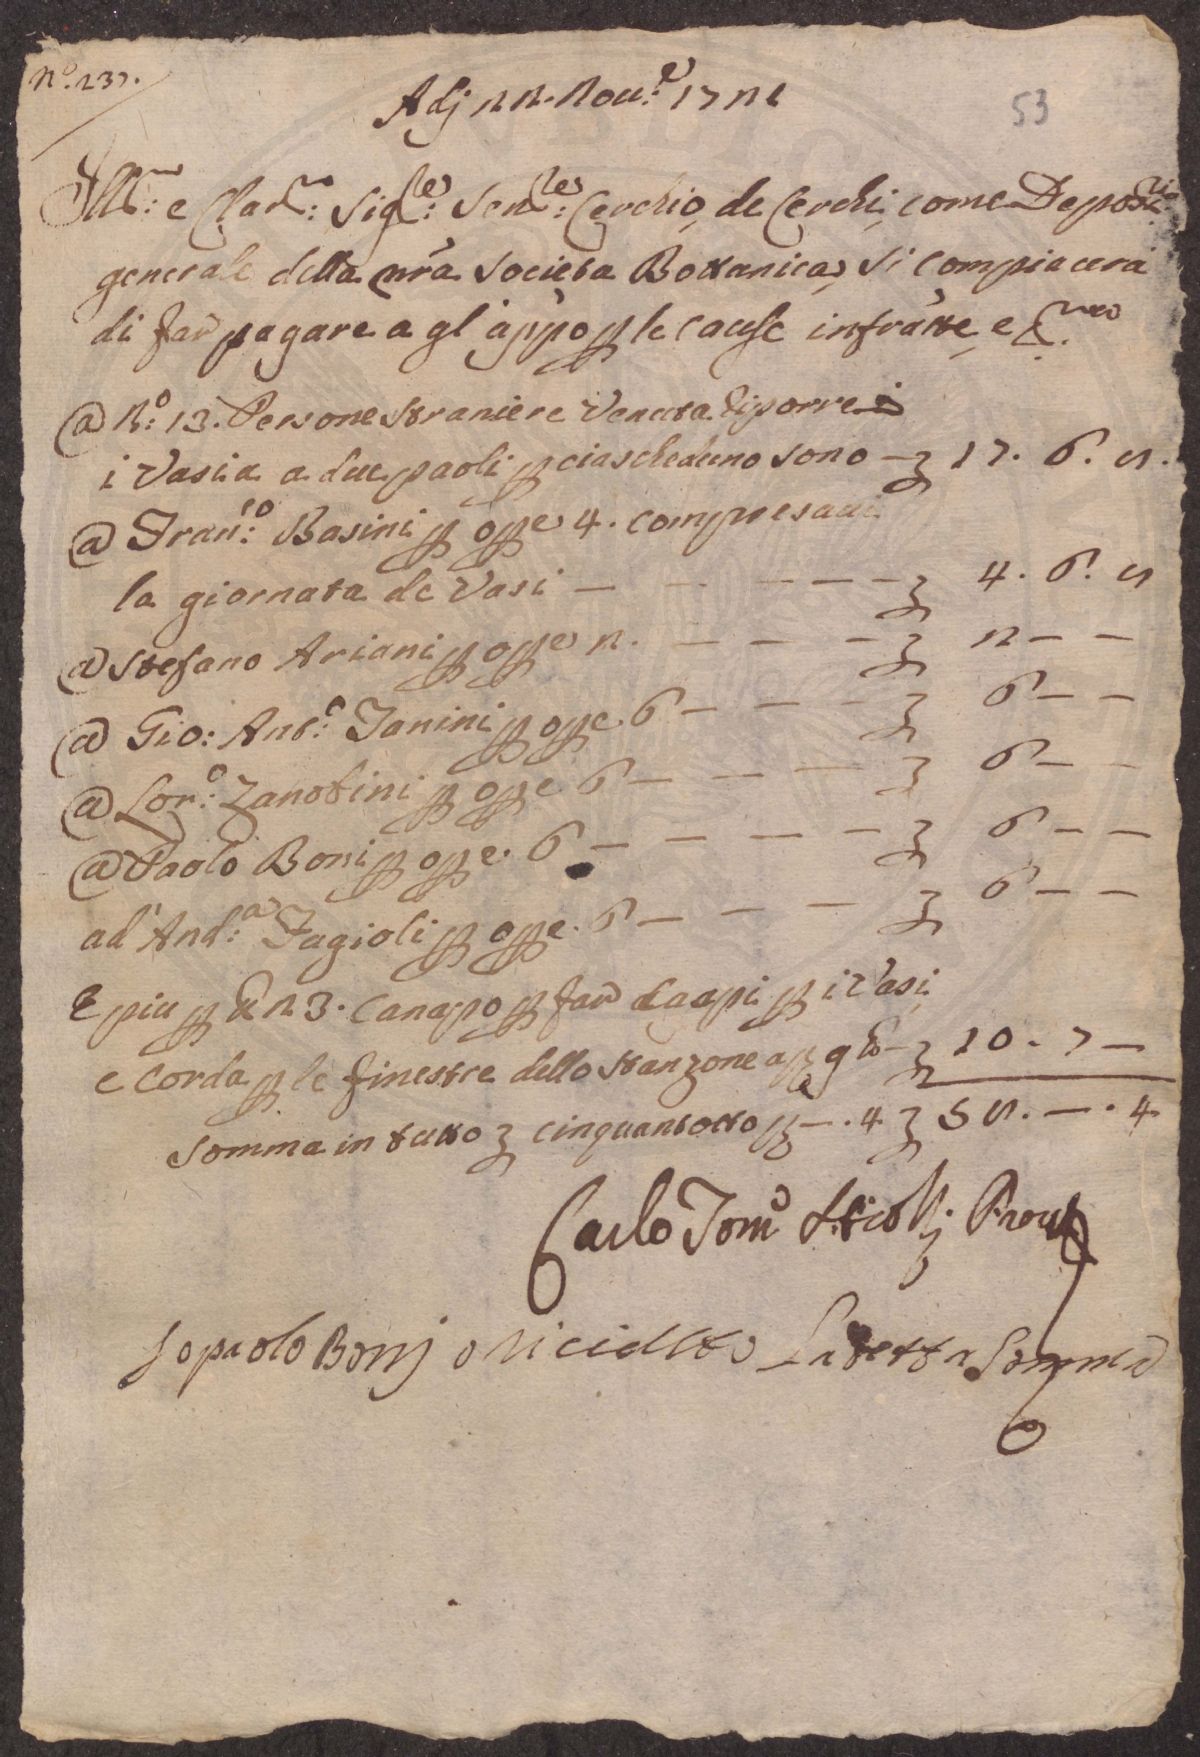 N.o 237.
Adj 22. Nou.e 1721
53
Ill.mo e Clar.mo Sig.re Sen.re Cerchio de Cerchi come Depos.rio
generale della nr̃a Societa Bottanica, si compiacera
di far pagare a gl'app.o p le cause infratte, e
@ N.o 13. Persone straniere Venuta riporre
i Vasi a a due paoli p ciascheduno sono — 17. 6. 8.
@ Fran.co Basini p opp.e 4. compresaui
la giornata de Vasi — — — — — 4. 6. 8
@ Stefano Ariani p opp.e 2. — — — 2 — —
@ Gio: Ant.o Janini p opp.e 6 — — — 6 — —
@ Lor.o Zanobini p opp.e 6 — — — 6 — —
@ Paolo Boni p opp.e. 6 — — — — — 6 — —
ad And.a Fagioli p opp.e. 6 — — — 6 — —
E piu p lb 23. Canapo p far Caapi p i Vasi
e corda p le finestre dello stanzone — 10. 7 —
Somma in tutto cinquantotto — . 4 58. — . 4
Carlo Tom.o
Io paolo Bonj o riceuto La detta Somma